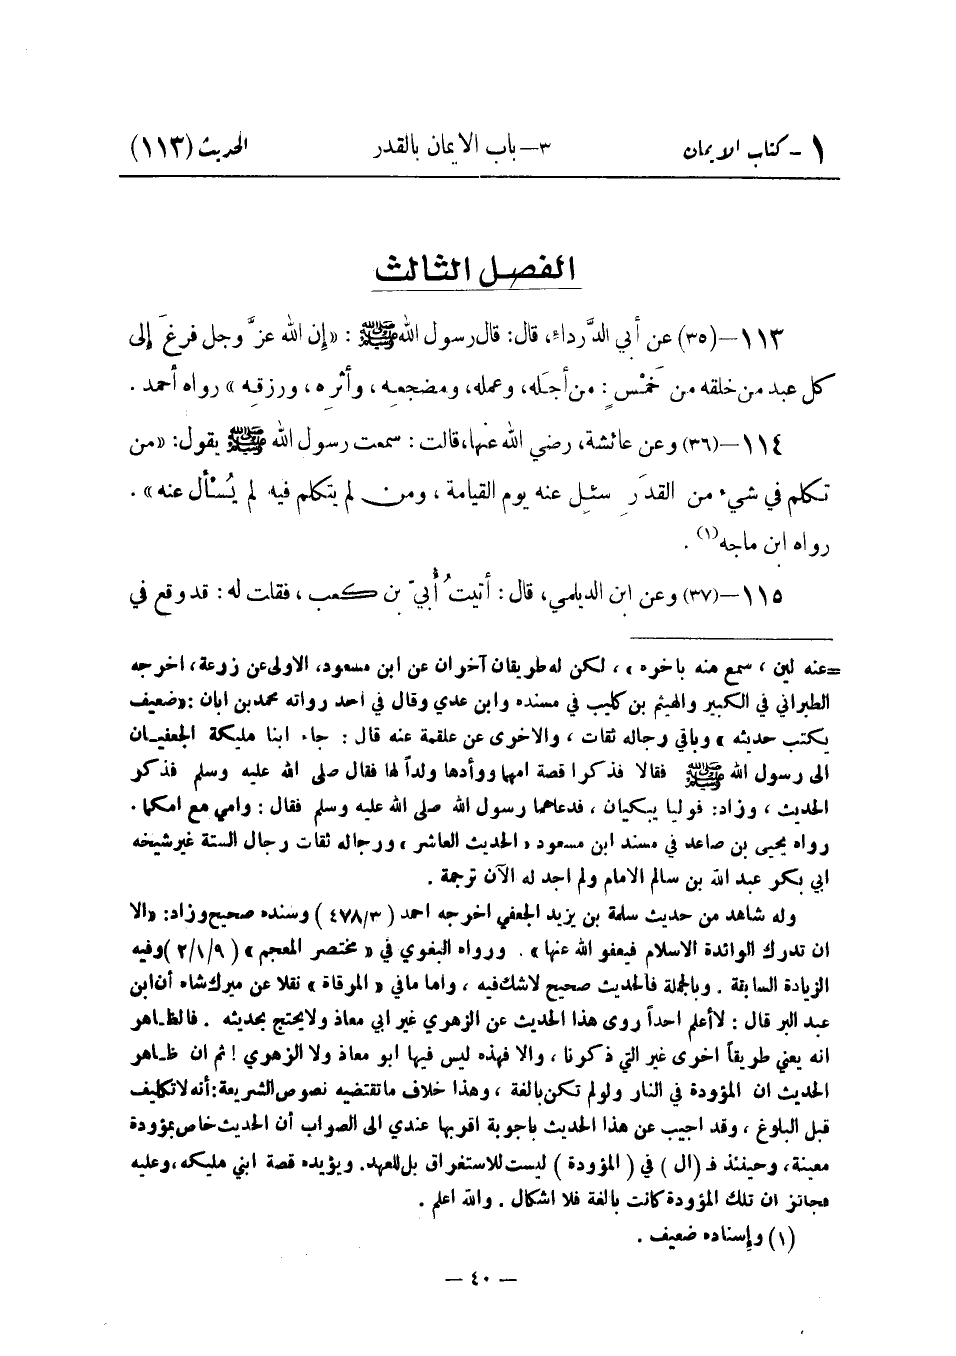 ١ - كتاب الايمان ٣- باب الايمان بالقدر الحديث (١١٣)
الفصل الثالث
١١٣-(٣٥) عن أبي الدَّرداء، قال: قال رسول الله ﷺ : «إن الله عزَّ وجل فرغَ إلى
كل عبد من خلقه من خَمْسٍ : من أجَله، وعمله، ومضجعِه، وأثرِه، ورزقِه » رواه أحمد .
١١٤-(٣٦) وعن عائشة، رضي الله عنها، قالت : سمعت رسول الله ﷺ يقول: «من
تكلم في شيء من القدَرِ سئل عنه يوم القيامة ، ومن لم يتكلم فيه لم يُسْأل عنه» .
رواه ابن ماجه(١) .
١١٥-(٣٧) وعن ابن الديلمي، قال : أتيتُ أُبيّ بن كعب ، فقلت له : قد وقع في
=عنه لين ، سمع منه باخره » ، لكن له طريقان آخران عن ابن مسعود، الاولى عن زرعة، اخرجه
الطبراني في الكبير والهيثم بن كليب في مسنده وابن عدي وقال في احد رواته محمد بن ابان :«ضعيف
يكتب حديثه » وباقي رجاله ثقات ، والاخرى عن علقمة عنه قال : جاء ابنا مليكة الجعفيان
الى رسول الله ﷺ فقالا فذكرا قصة امها ووأدها ولداً لها فقال صلى الله عليه وسلم فذكر
الحديث ، وزاد: فوليا يبكيان ، فدعاهما رسول الله صلى الله عليه وسلم فقال : وامي مع امكما .
رواه يحيى بن صاعد في مسند ابن مسعود « الحديث العاشر » ورجاله ثقات رجال الستة غير شيخه
ابي بكر عبد الله بن سالم الامام ولم اجد له الآن ترجمة .
وله شاهد من حديث سلمة بن يزيد الجعفي اخرجه احمد (٤٧٨/٣) وسنده صحيح وزاد: «الا
ان تدرك الوائدة الاسلام فيعفو الله عنها» . ورواه البغوي في « مختصر المعجم » (٢/١/٩) وفيه
الزيادة السابقة . وبالجملة فالحديث صحيح لاشك فيه ، واما ما في « المرقاة » نقلا عن ميرك شاه أن ابن
عبد البر قال : لا أعلم احداً روى هذا الحديث عن الزهري غير ابي معاذ ولا يحتج بحديثه . فالظاهر
انه يعني طريقاً اخرى غير التي ذكرنا ، والا فهذه ليس فيها ابو معاذ ولا الزهري ! ثم ان ظاهر
الحديث ان المؤودة في النار ولو لم تكن بالغة ، وهذا خلاف ما تقتضيه نصوص الشريعة: أنه لا تكليف
قبل البلوغ ، وقد اجيب عن هذا الحديث باجوبة اقربها عندي الى الصواب أن الحديث خاص بمؤودة
معينة، وحينئذ فـ (ال) في (المؤودة) ليست للاستغراق بل للعهد. ويؤيده قصة ابني مليكه، وعليه
فجائز ان تلك المؤودة كانت بالغة فلا اشكال . والله اعلم .
(١) وإسناده ضعيف .
— ٤٠ —